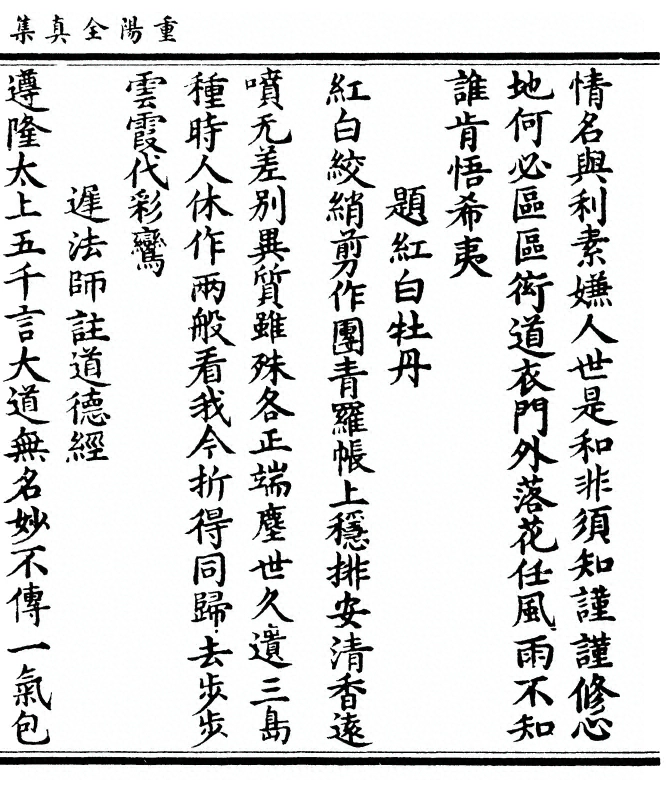 重陽全真集
情名與利素嫌人世是和非須知謹謹修心
地何必區區衒道衣門外落花任風雨不知
誰肯悟希夷
題紅白牡丹
紅白絞綃剪作團青羅帳上穩排安清香遠
噴无差別異質雖殊各正端塵世久遺三島
種時人休作兩般看我今折得同歸去步步
雲霞代彩鸞
遲法師註道德經
遵隆太上五千言大道無名妙不傳一氣包